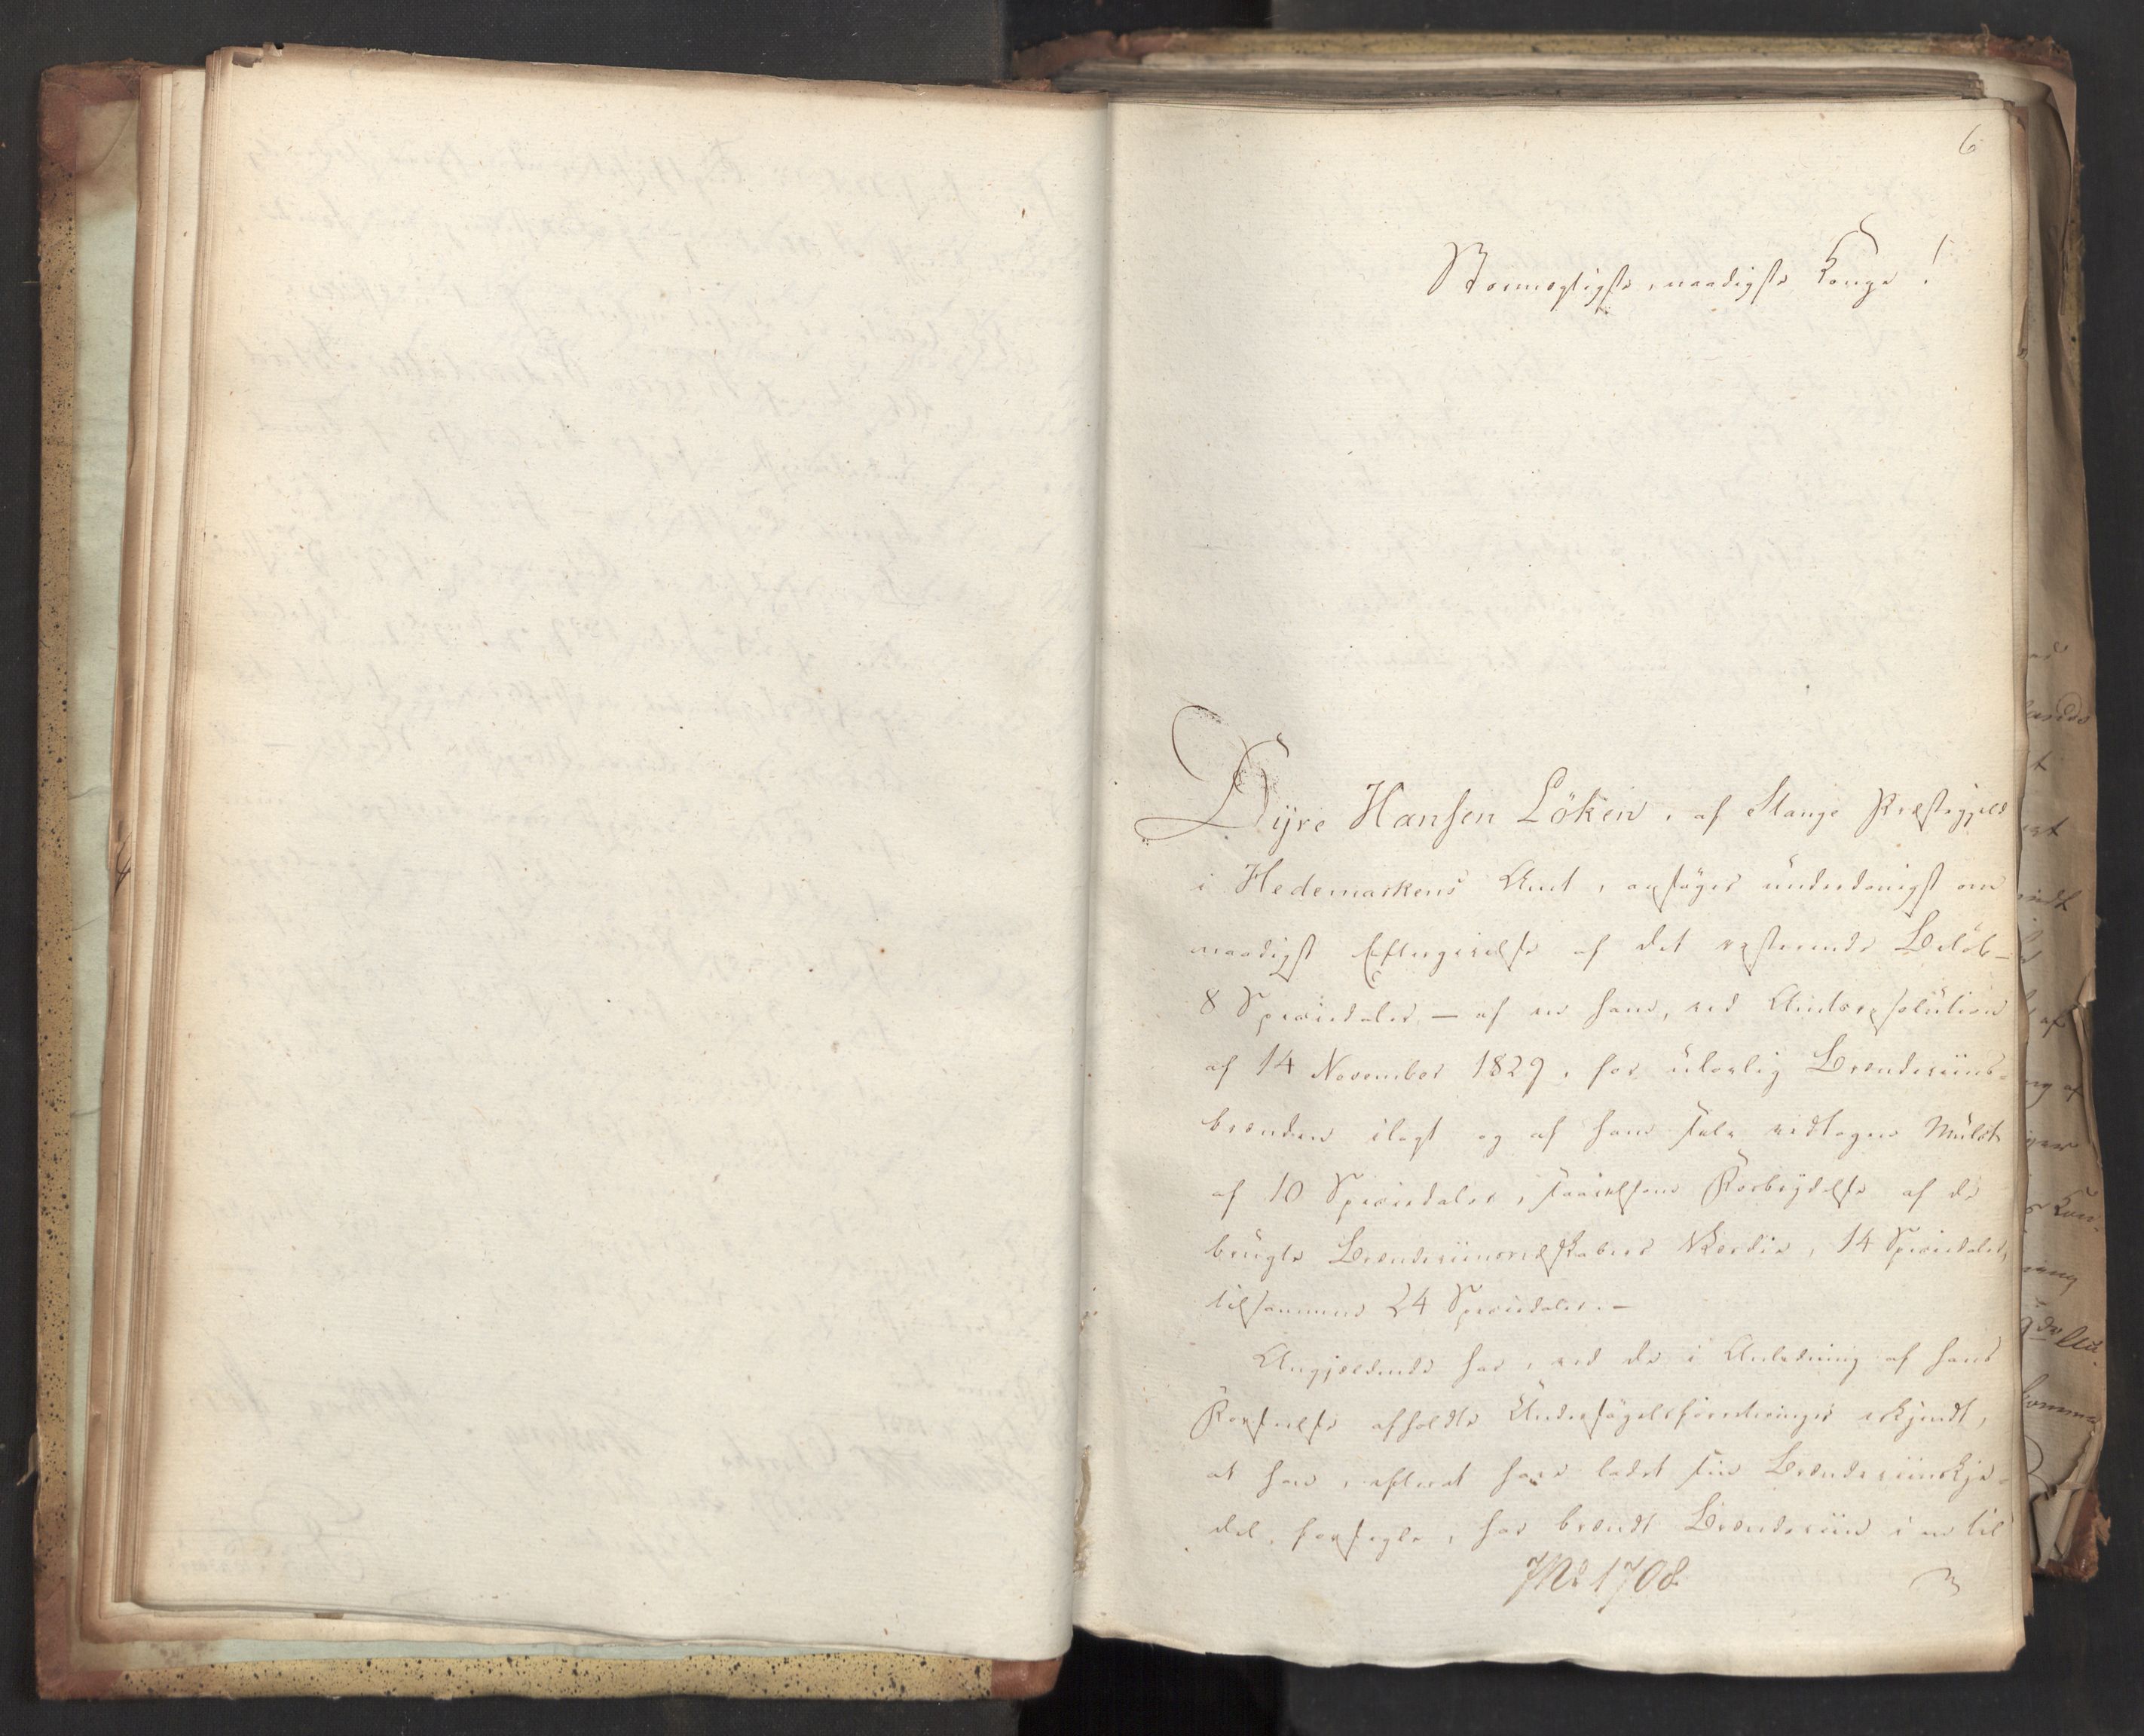 6
Stormægtigste, naadigste Konge!
Dyre Hansen Löken, af Stange Præstegjeld
i Hedemarkens Amt, ansøger underdanigst om
naadigst Eftergivelse af det resterende Beløb —
8 Speciedaler — af en ham, ved Amtsresolution
af 14 November 1829, for ulovlig Brændeviins-
brænden ilagt og af ham selv vedtagen Mulct
af 10 Speciedaler, saavelsom Forbrydelse af de
brugte Brændeviinsredskabers Værdie, 14 Speciedaler,
tilsammen 24 Speciedaler. —
Angjældende har, ved de i Anledning af hans
Forseelse afholdte Undersøgelsforretninger erkjendt,
at han, efterat have ladet sin Brændeviinskje-
del forsegle, har brændt Brændeviin i en til
JNo 1708.